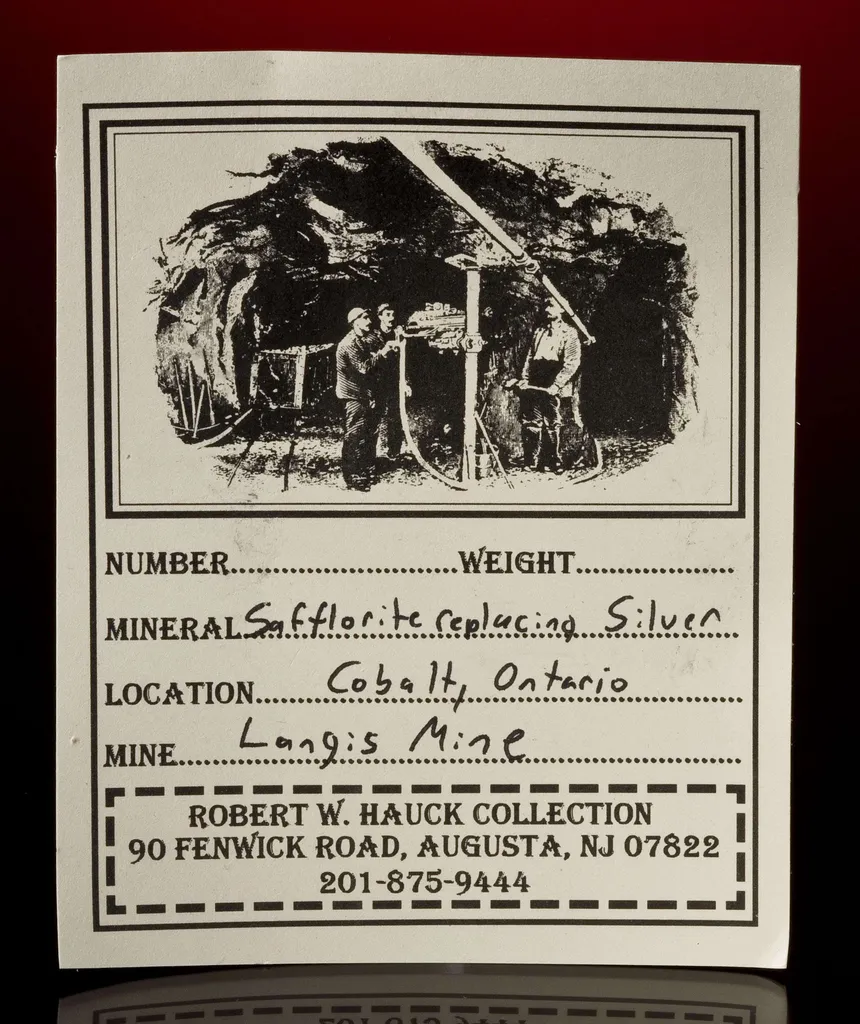 NUMBER..........................WEIGHT..................
MINERAL Safflorite replacing Silver
LOCATION.......Cobalt, Ontario
MINE.......Langis Mine
ROBERT W. HAUCK COLLECTION
90 FENWICK ROAD, AUGUSTA, NJ 07822
201-875-9444